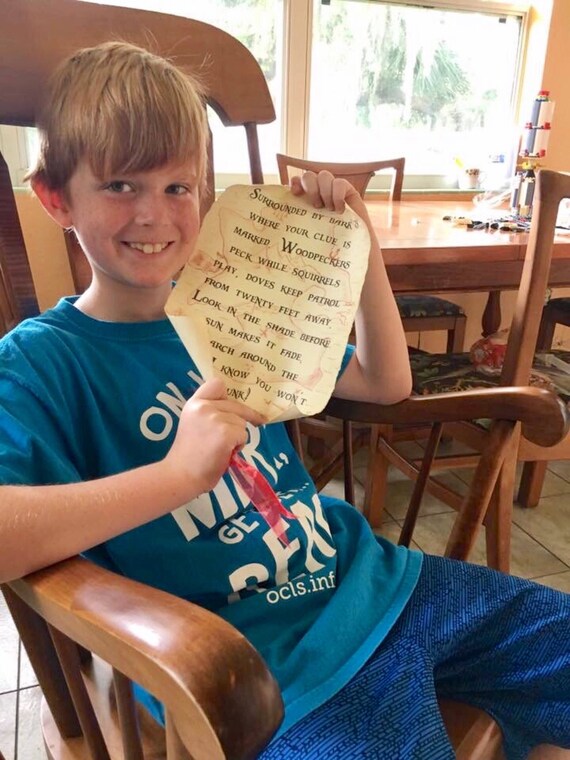 Surrounded by bark
where your clue is
marked. Woodpeckers
peck while squirrels
play, doves keep patrol
from twenty feet away.
Look in the shade before
sun makes it fade,
arch around the
know you won't
unk!
On
Get
ocls.inf